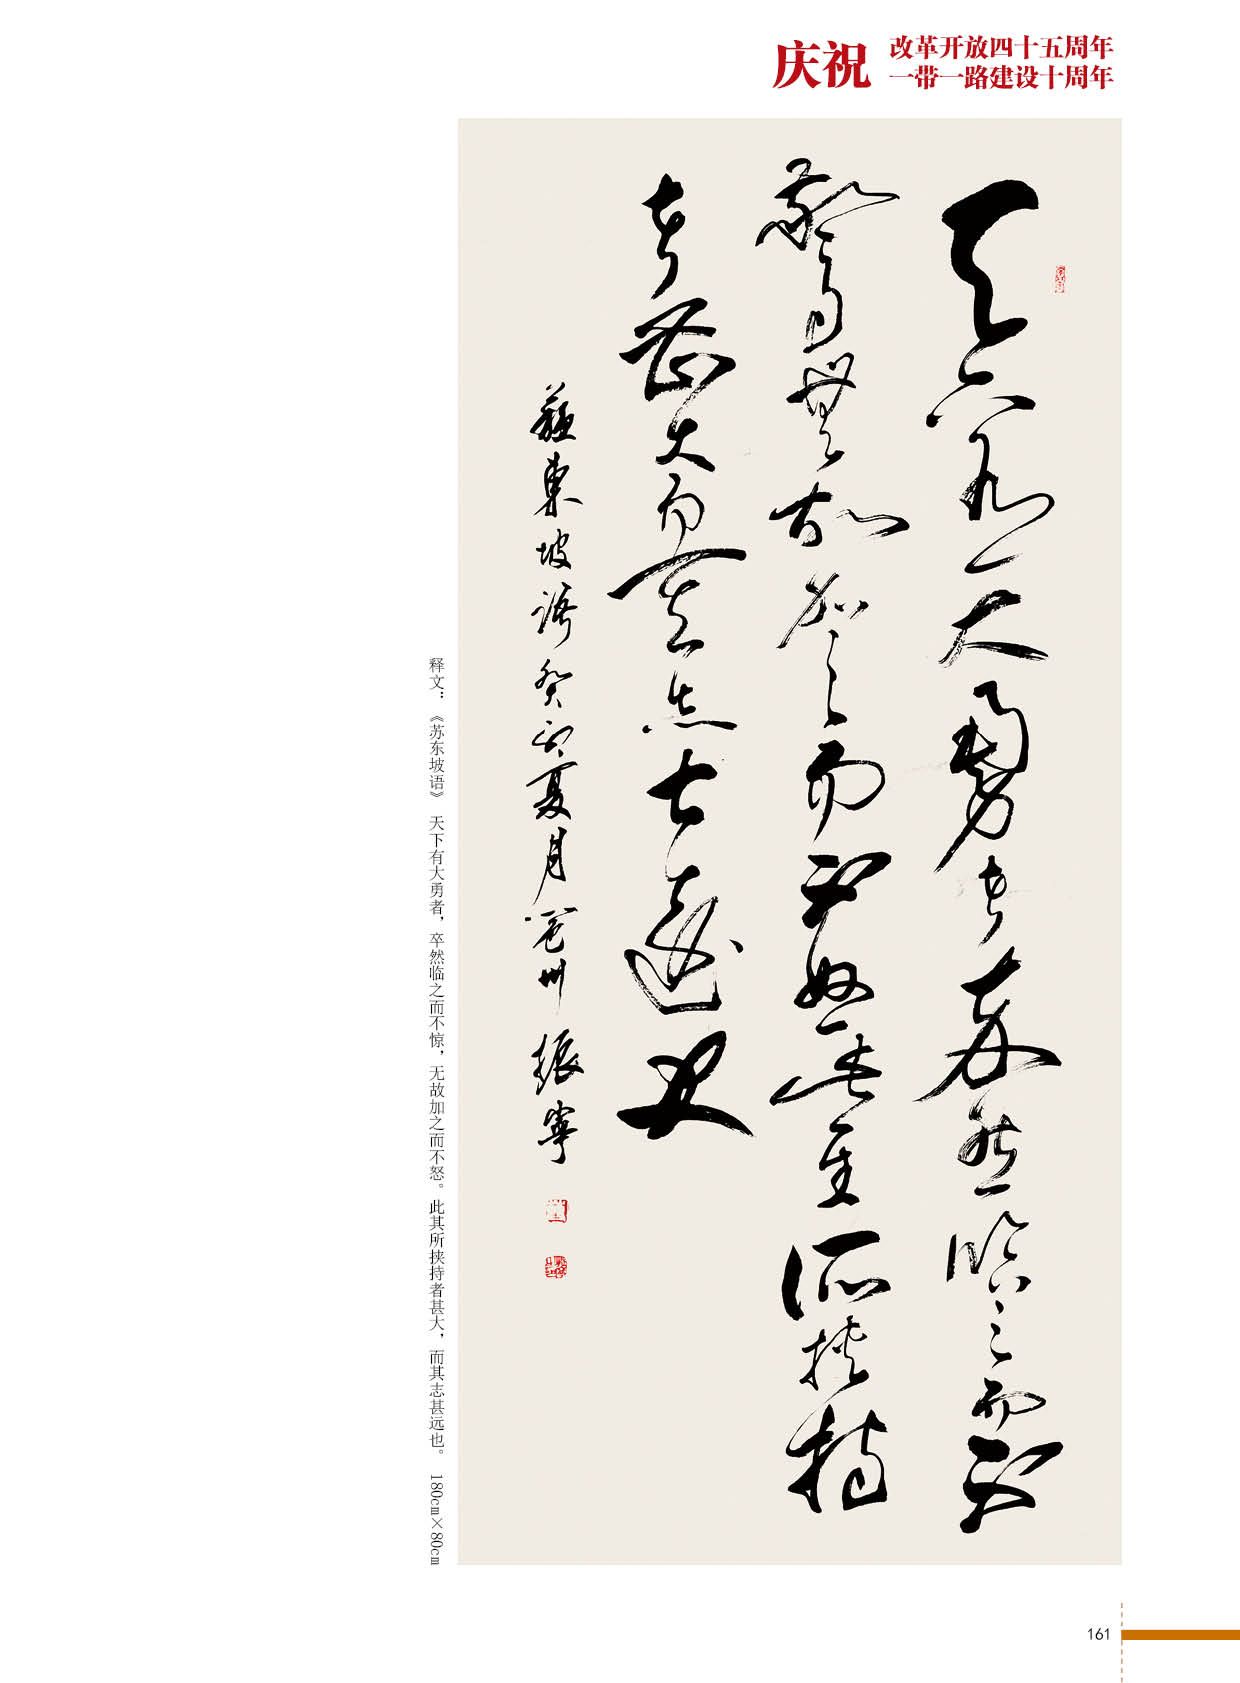 庆祝 改革开放四十五周年
一带一路建设十周年
天下有大勇者卒然臨之而不
驚無故加之而不怒此其所挟持
者甚大而其志甚遠也
蘇東坡語癸卯夏月州振寧
释文：《苏东坡语》 天下有大勇者，卒然临之而不惊，无故加之而不怒。此其所挟持者甚大，而其志甚远也。 180cm×80cm
161